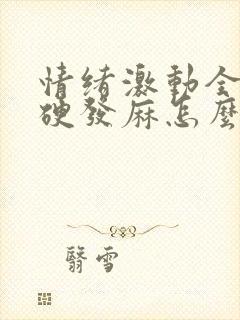 情緒激動全
硬發麻怎麼
翳雪